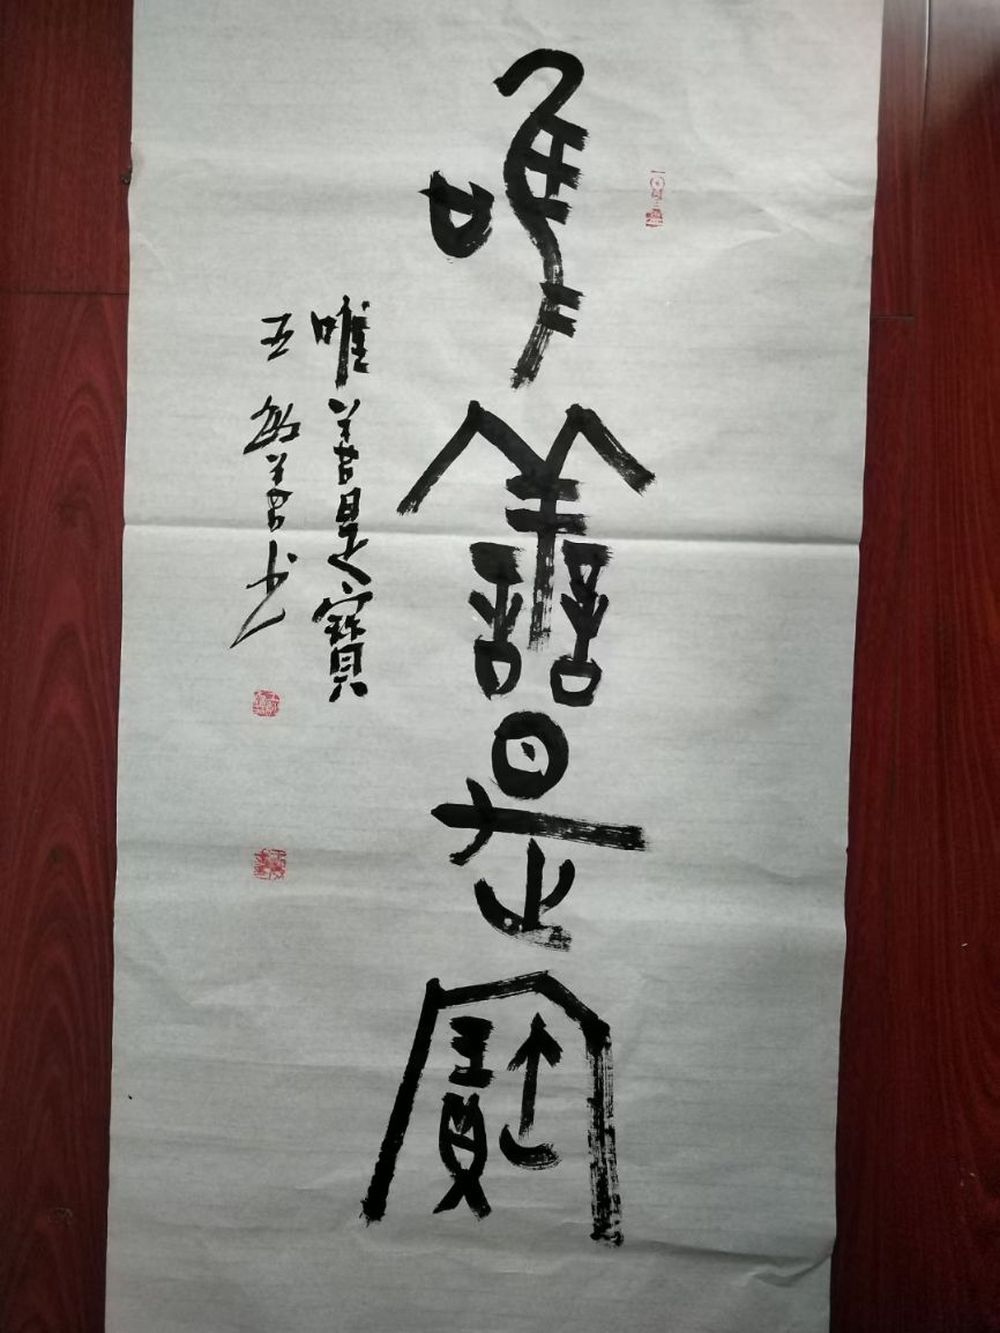 唯善是寶
唯善是寶
敏善书